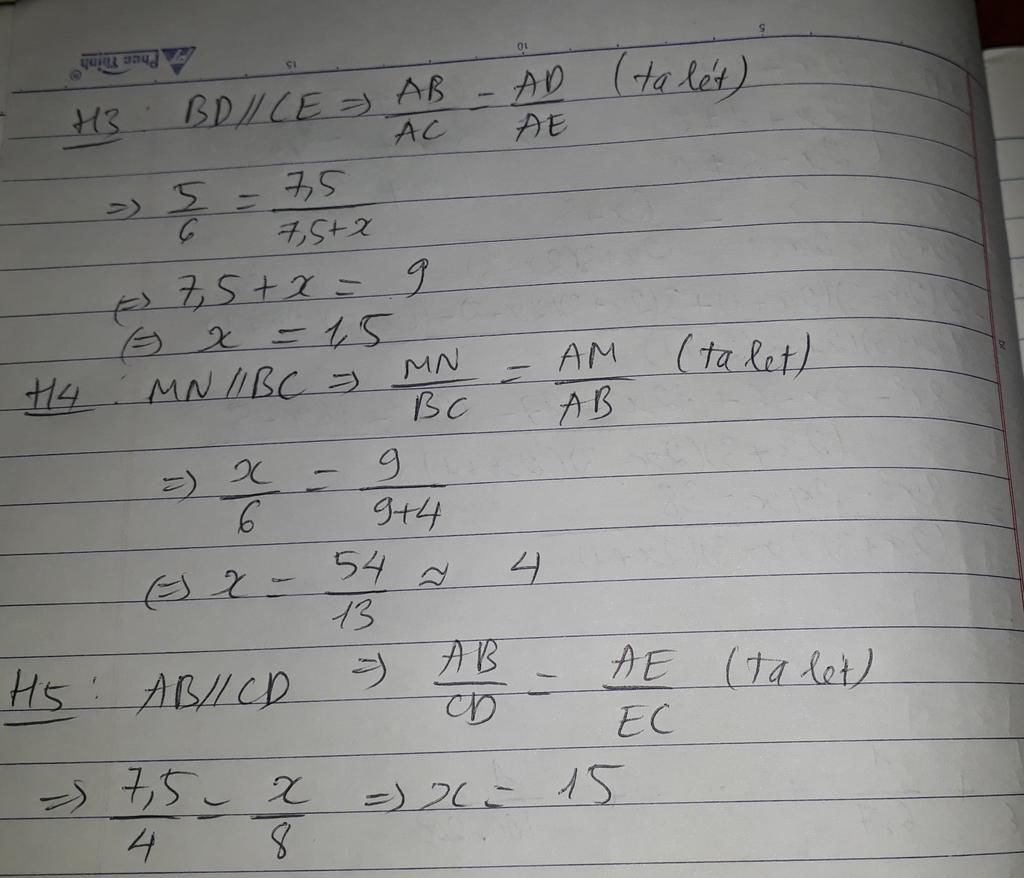 Phuc Thinh ®
15 10 5
H3 : BD//CE => AB/AC = AD/AE (ta lét)
=> 5/6 = 7,5/7,5+x
<=> 7,5+x = 9
<=> x = 1,5
H4 : MN//BC => MN/BC = AM/AB (ta let)
=> x/6 = 9/9+4
<=> x = 54/13 ≈ 4
H5 : AB//CD => AB/CD = AE/EC (ta lét)
=> 7,5/4 = x/8 => x = 15